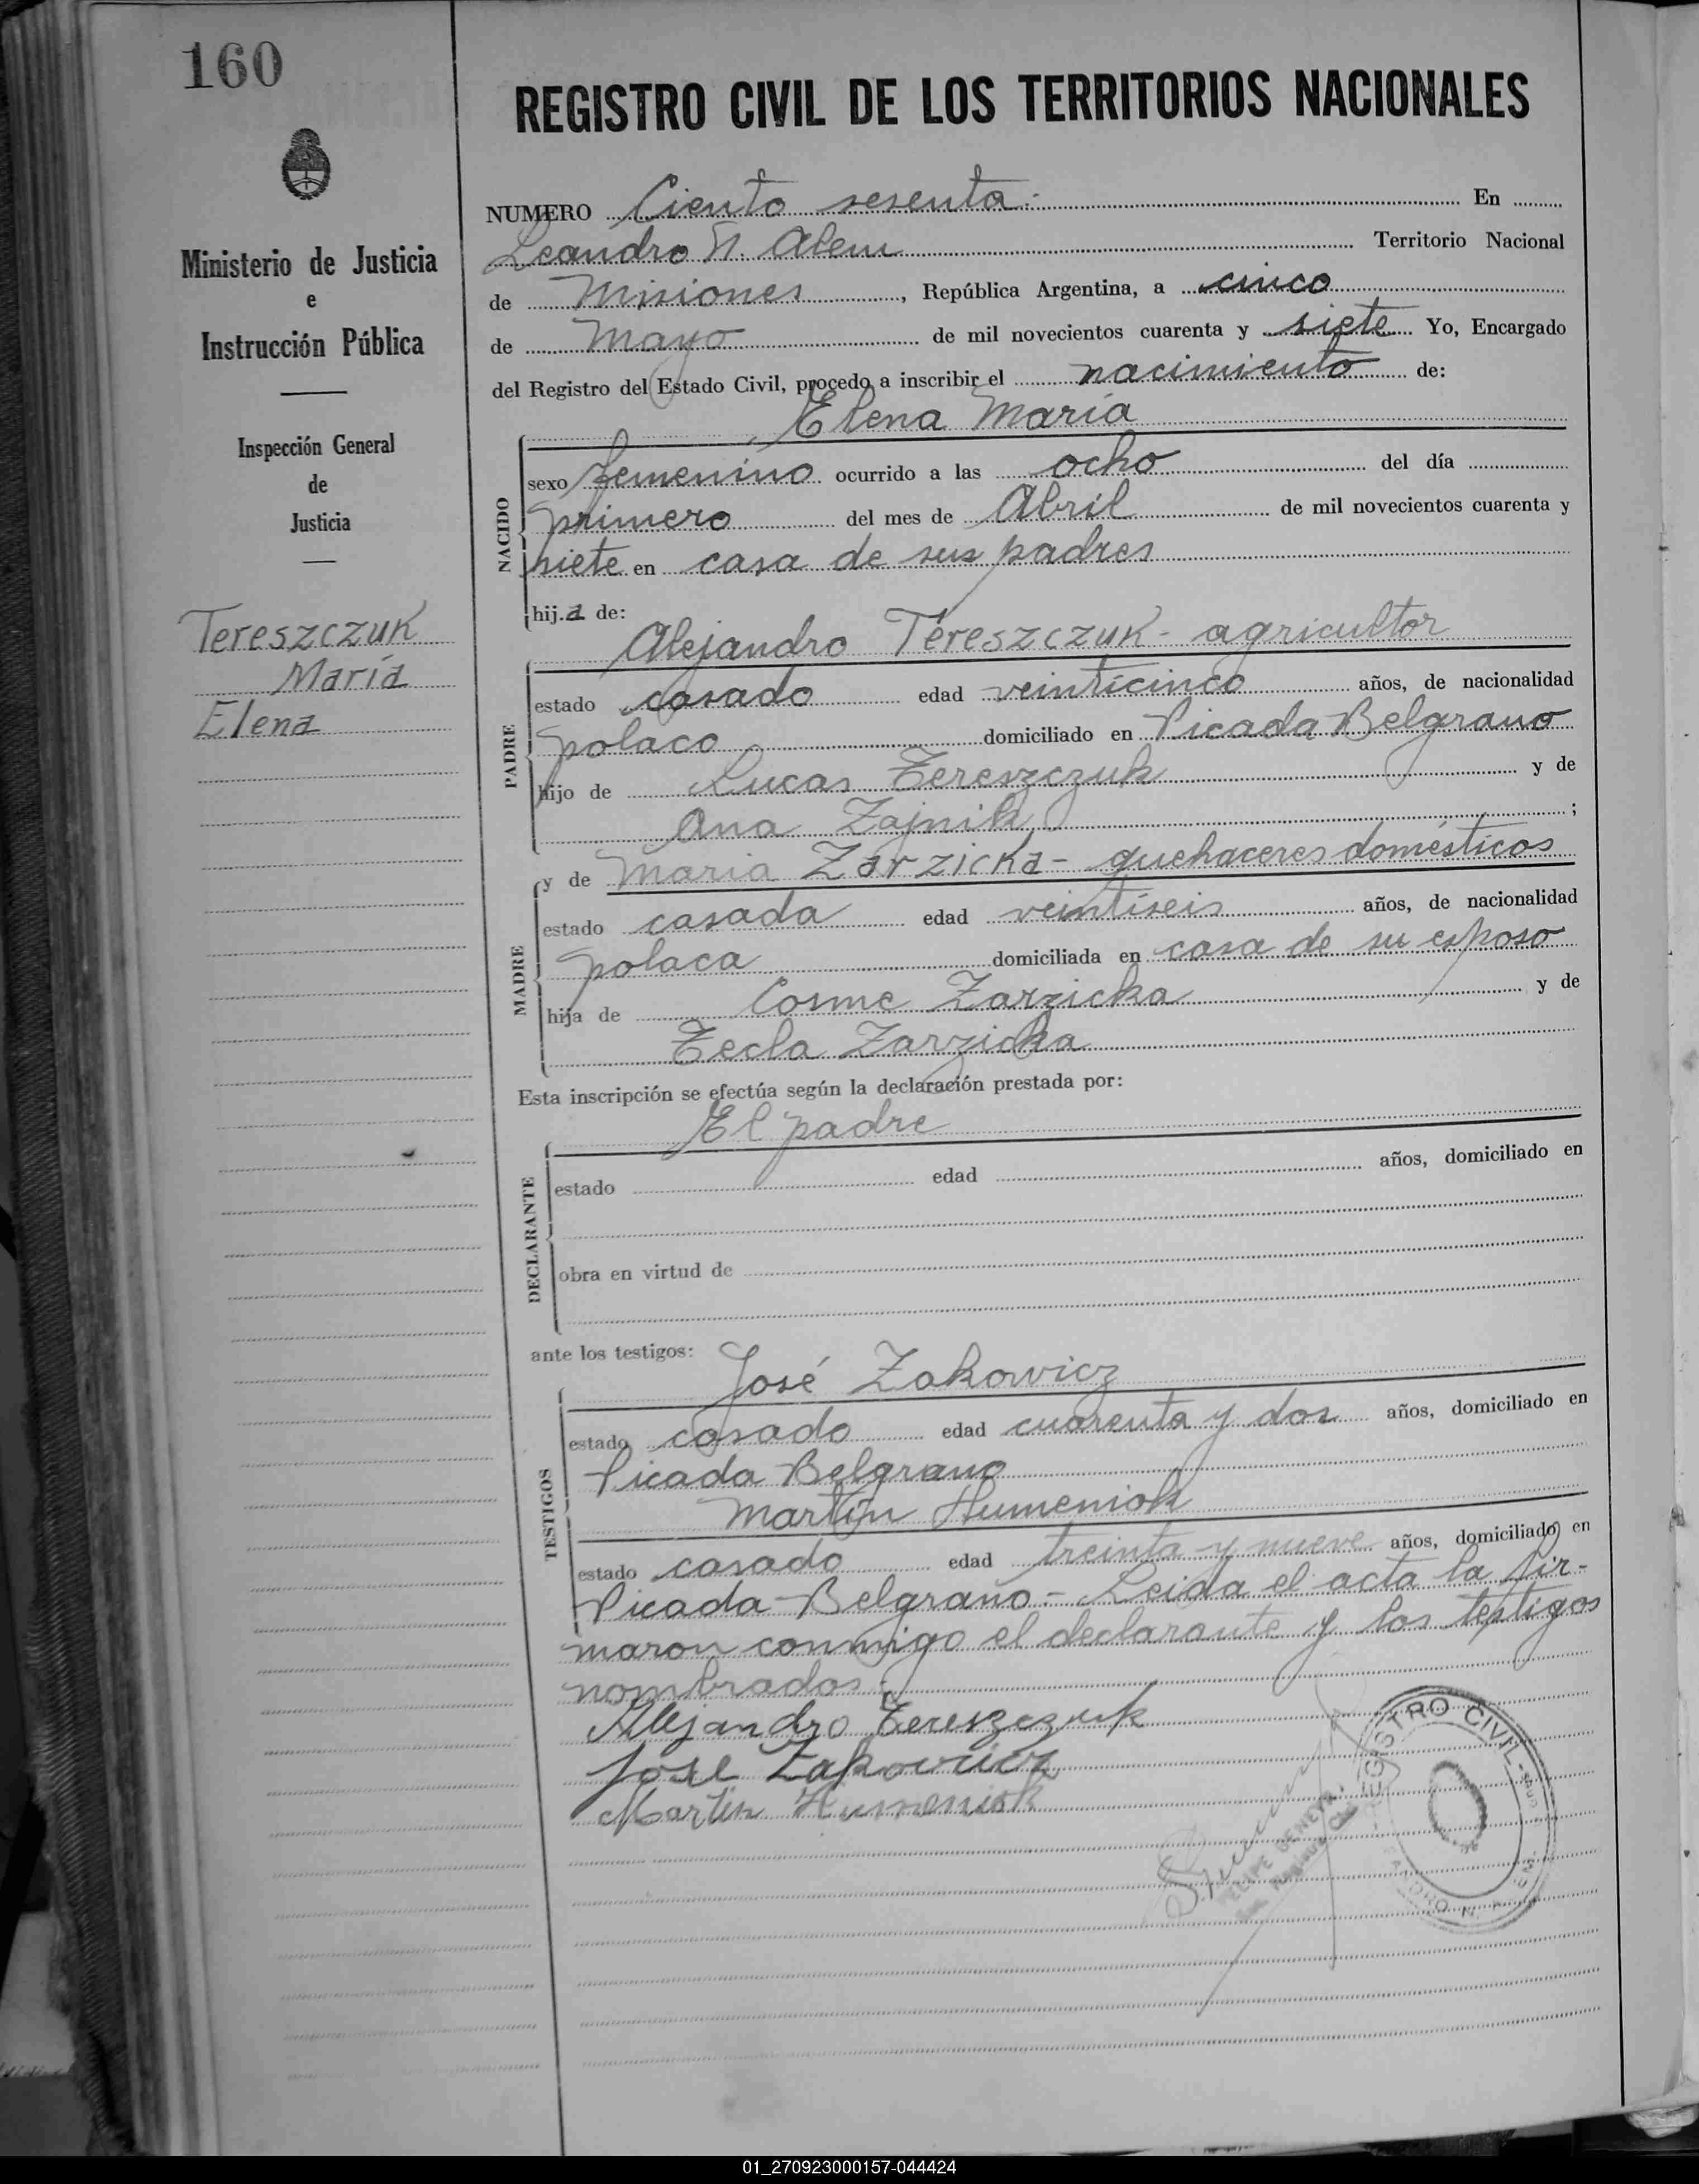 160
Ministerio de Justicia
e
Instrucción Pública
Inspección General
de
Justicia
Tereszczuk
María
Elena
REGISTRO CIVIL DE LOS TERRITORIOS NACIONALES
NUMERO Ciento sesenta.- En
Leandro N. Alem Territorio Nacional
de Misiones, República Argentina, a cinco
de Mayo de mil novecientos cuarenta y siete Yo, Encargado
del Registro del Estado Civil, procedo a inscribir el nacimiento de:
Elena María
NACIDO
sexo femenino ocurrido a las ocho del día
primero del mes de Abril de mil novecientos cuarenta y
siete en casa de sus padres
hija de:
Alejandro Tereszczuk - agricultor
PADRE
estado casado edad veinticinco años, de nacionalidad
polaco domiciliado en Picada Belgrano
hijo de Lucas Tereszczuk y de
Ana Zajnik ;
y de Maria Zarzicka - quehaceres domésticos
MADRE
estado casada edad veintiseis años, de nacionalidad
polaca domiciliada en casa de su esposo
hija de Cosme Zarzicka y de
Tecla Zarzicka
Esta inscripción se efectúa según la declaración prestada por:
El padre
DECLARANTE
estado edad años, domiciliado en
obra en virtud de
ante los testigos:
José Zakowicz
TESTIGOS
estado casado edad cuarenta y dos años, domiciliado en
Picada Belgrano
Martín Humeniok
estado casado edad treinta y nueve años, domiciliado en
Picada Belgrano.- Leida el acta la fir-
maron conmigo el declarante y los testigos
nombrados.-
Alejandro Tereszczuk
Jose Zakowicz
Martin Humeniok
REGISTRO CIVIL
01_270923000157-044424